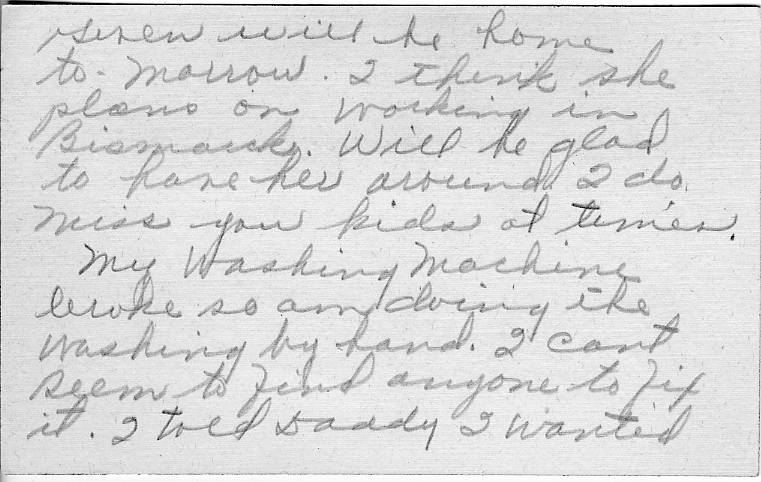 will be home
to-morrow. I think she
plans on working in
Bismarck. Will be glad
to have her around. I do
miss you kids at times.
My Washing Machine
broke so am doing the
washing by hand. I cant
seem to find anyone to fix
it. I told Daddy I wanted